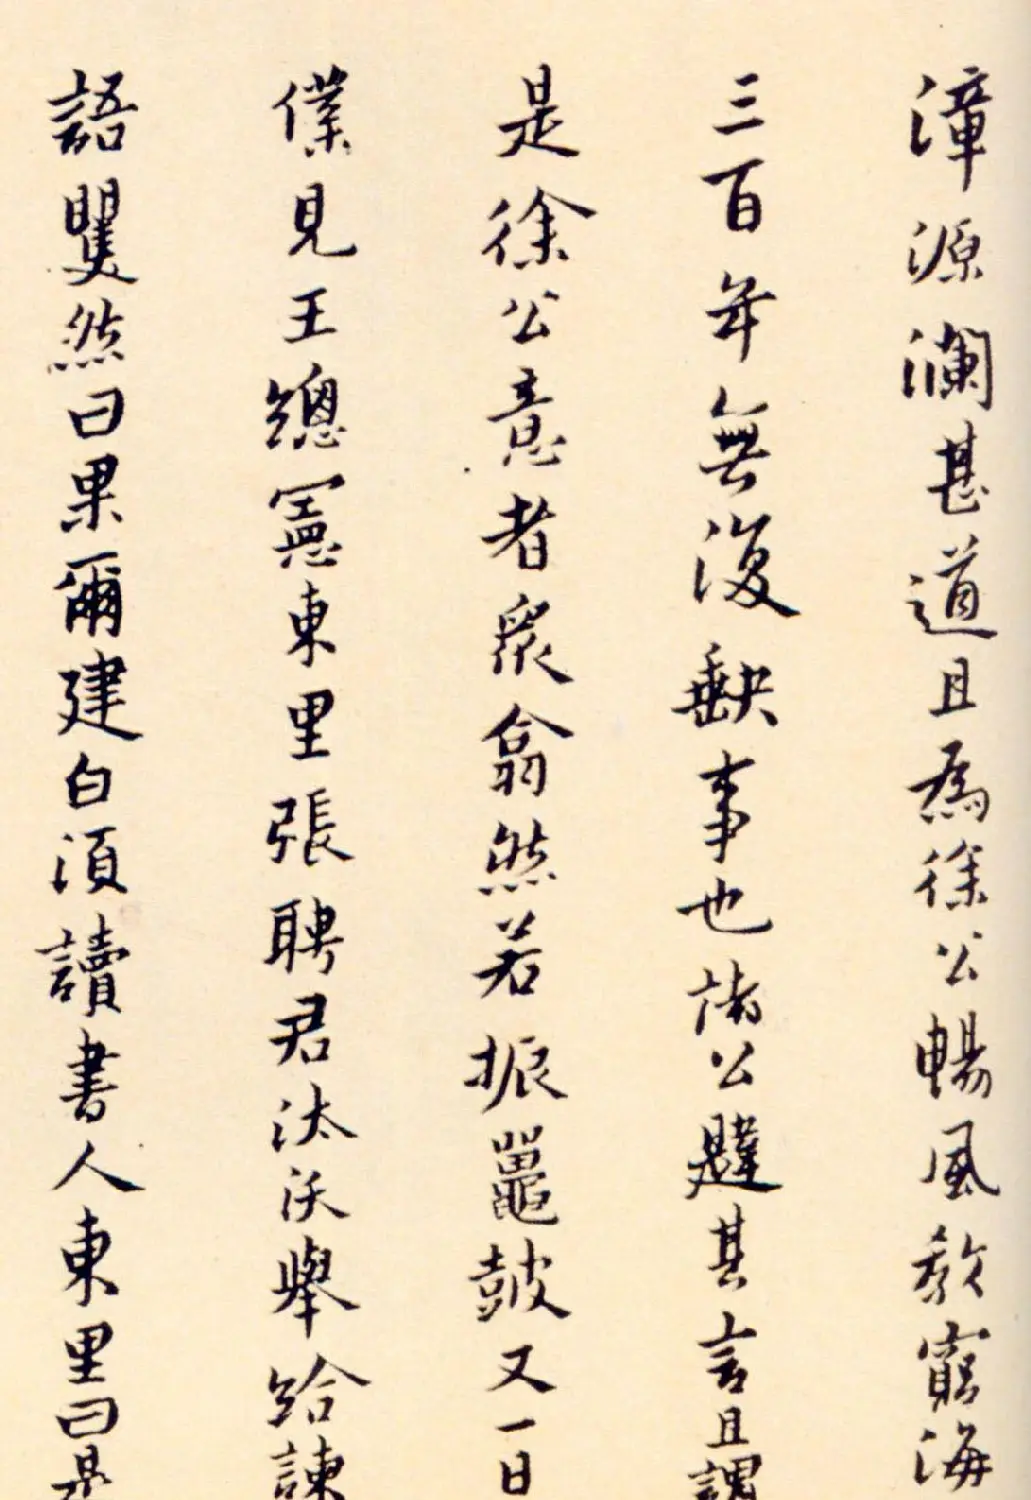 漳源瀾甚道且為徐公暢風教窮海
三百年無復缺事也諸公韙其言且謂
是徐公意者眾翕然若振鼉鼓又一日
僕見王總憲東里張聘君汰沃舉給諫
語矍然曰果爾建白須讀書人東里曰是